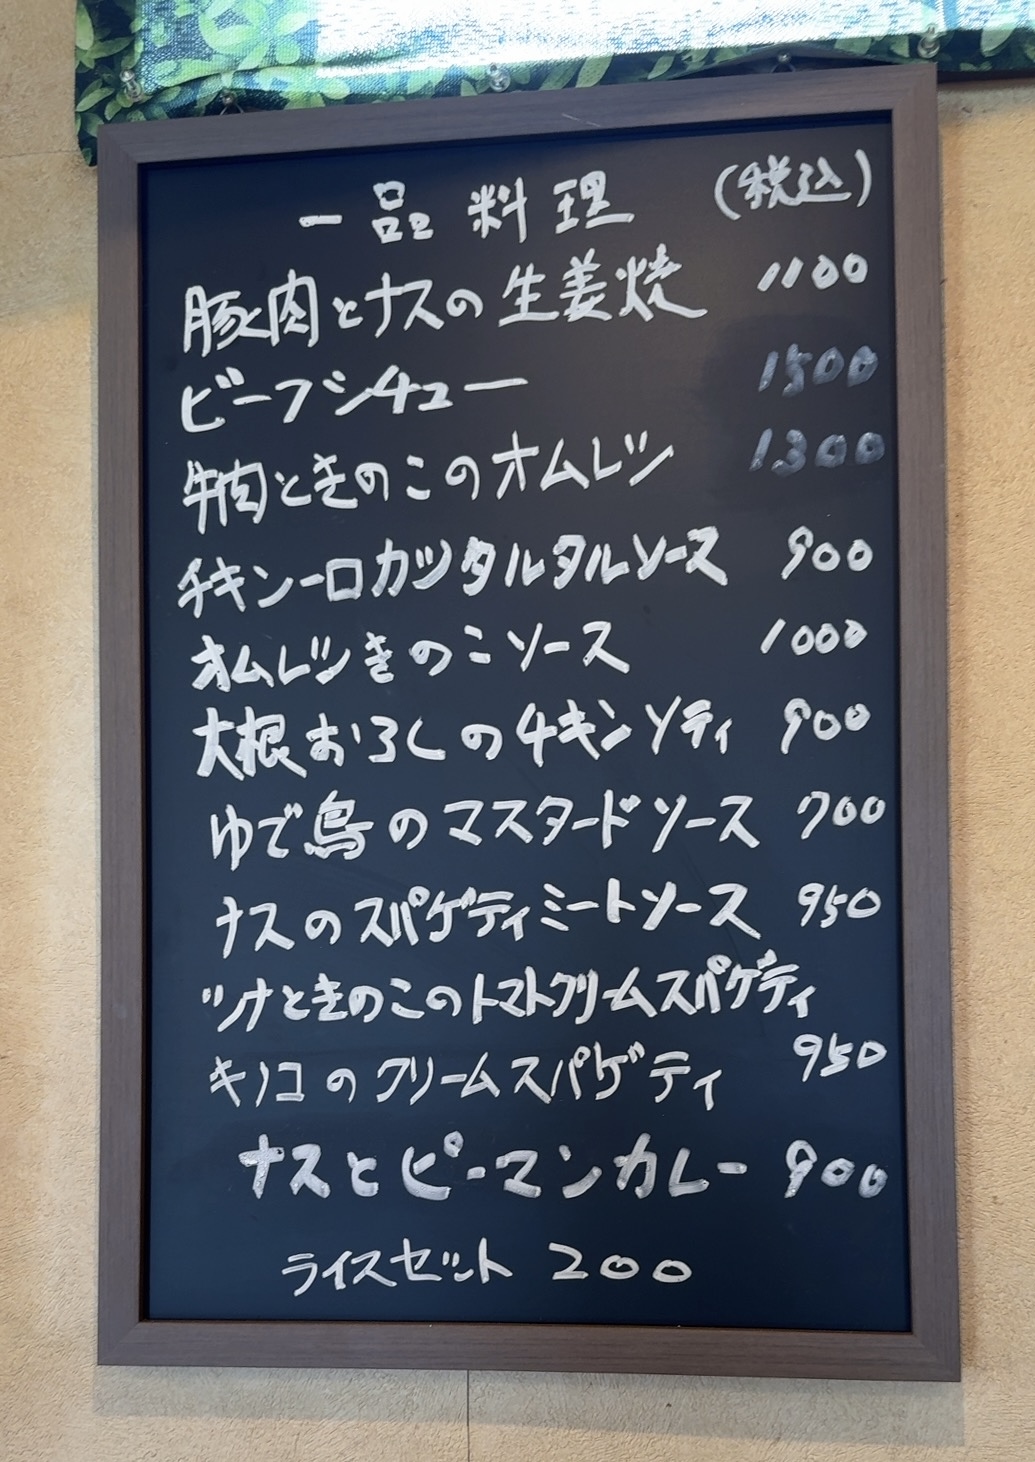 一品料理 (税込)
豚肉とナスの生姜焼 1100
ビーフシチュー 1500
牛肉ときのこのオムレツ 1300
チキン一口カツタルタルソース 900
オムレツきのこソース 1000
大根おろしのチキンソティ 900
ゆで鳥のマスタードソース 700
ナスのスパゲティミートソース 950
ツナときのこのトマトクリームスパゲティ
キノコのクリームスパゲティ 950
ナスとピーマンカレー 900
ライスセット 200